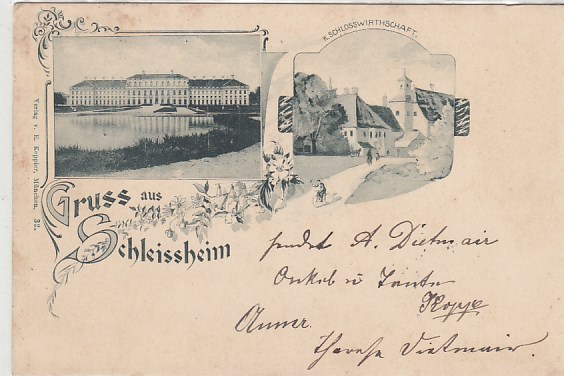 K. SCHLOSSWIRTHSCHAFT.
Verlag v. E. Koppler, München, 32.
Gruss aus
Schleissheim
sendet A. Dietmair
Onkel u Tante
Kopp
Anmer.
Therese Dietmair.